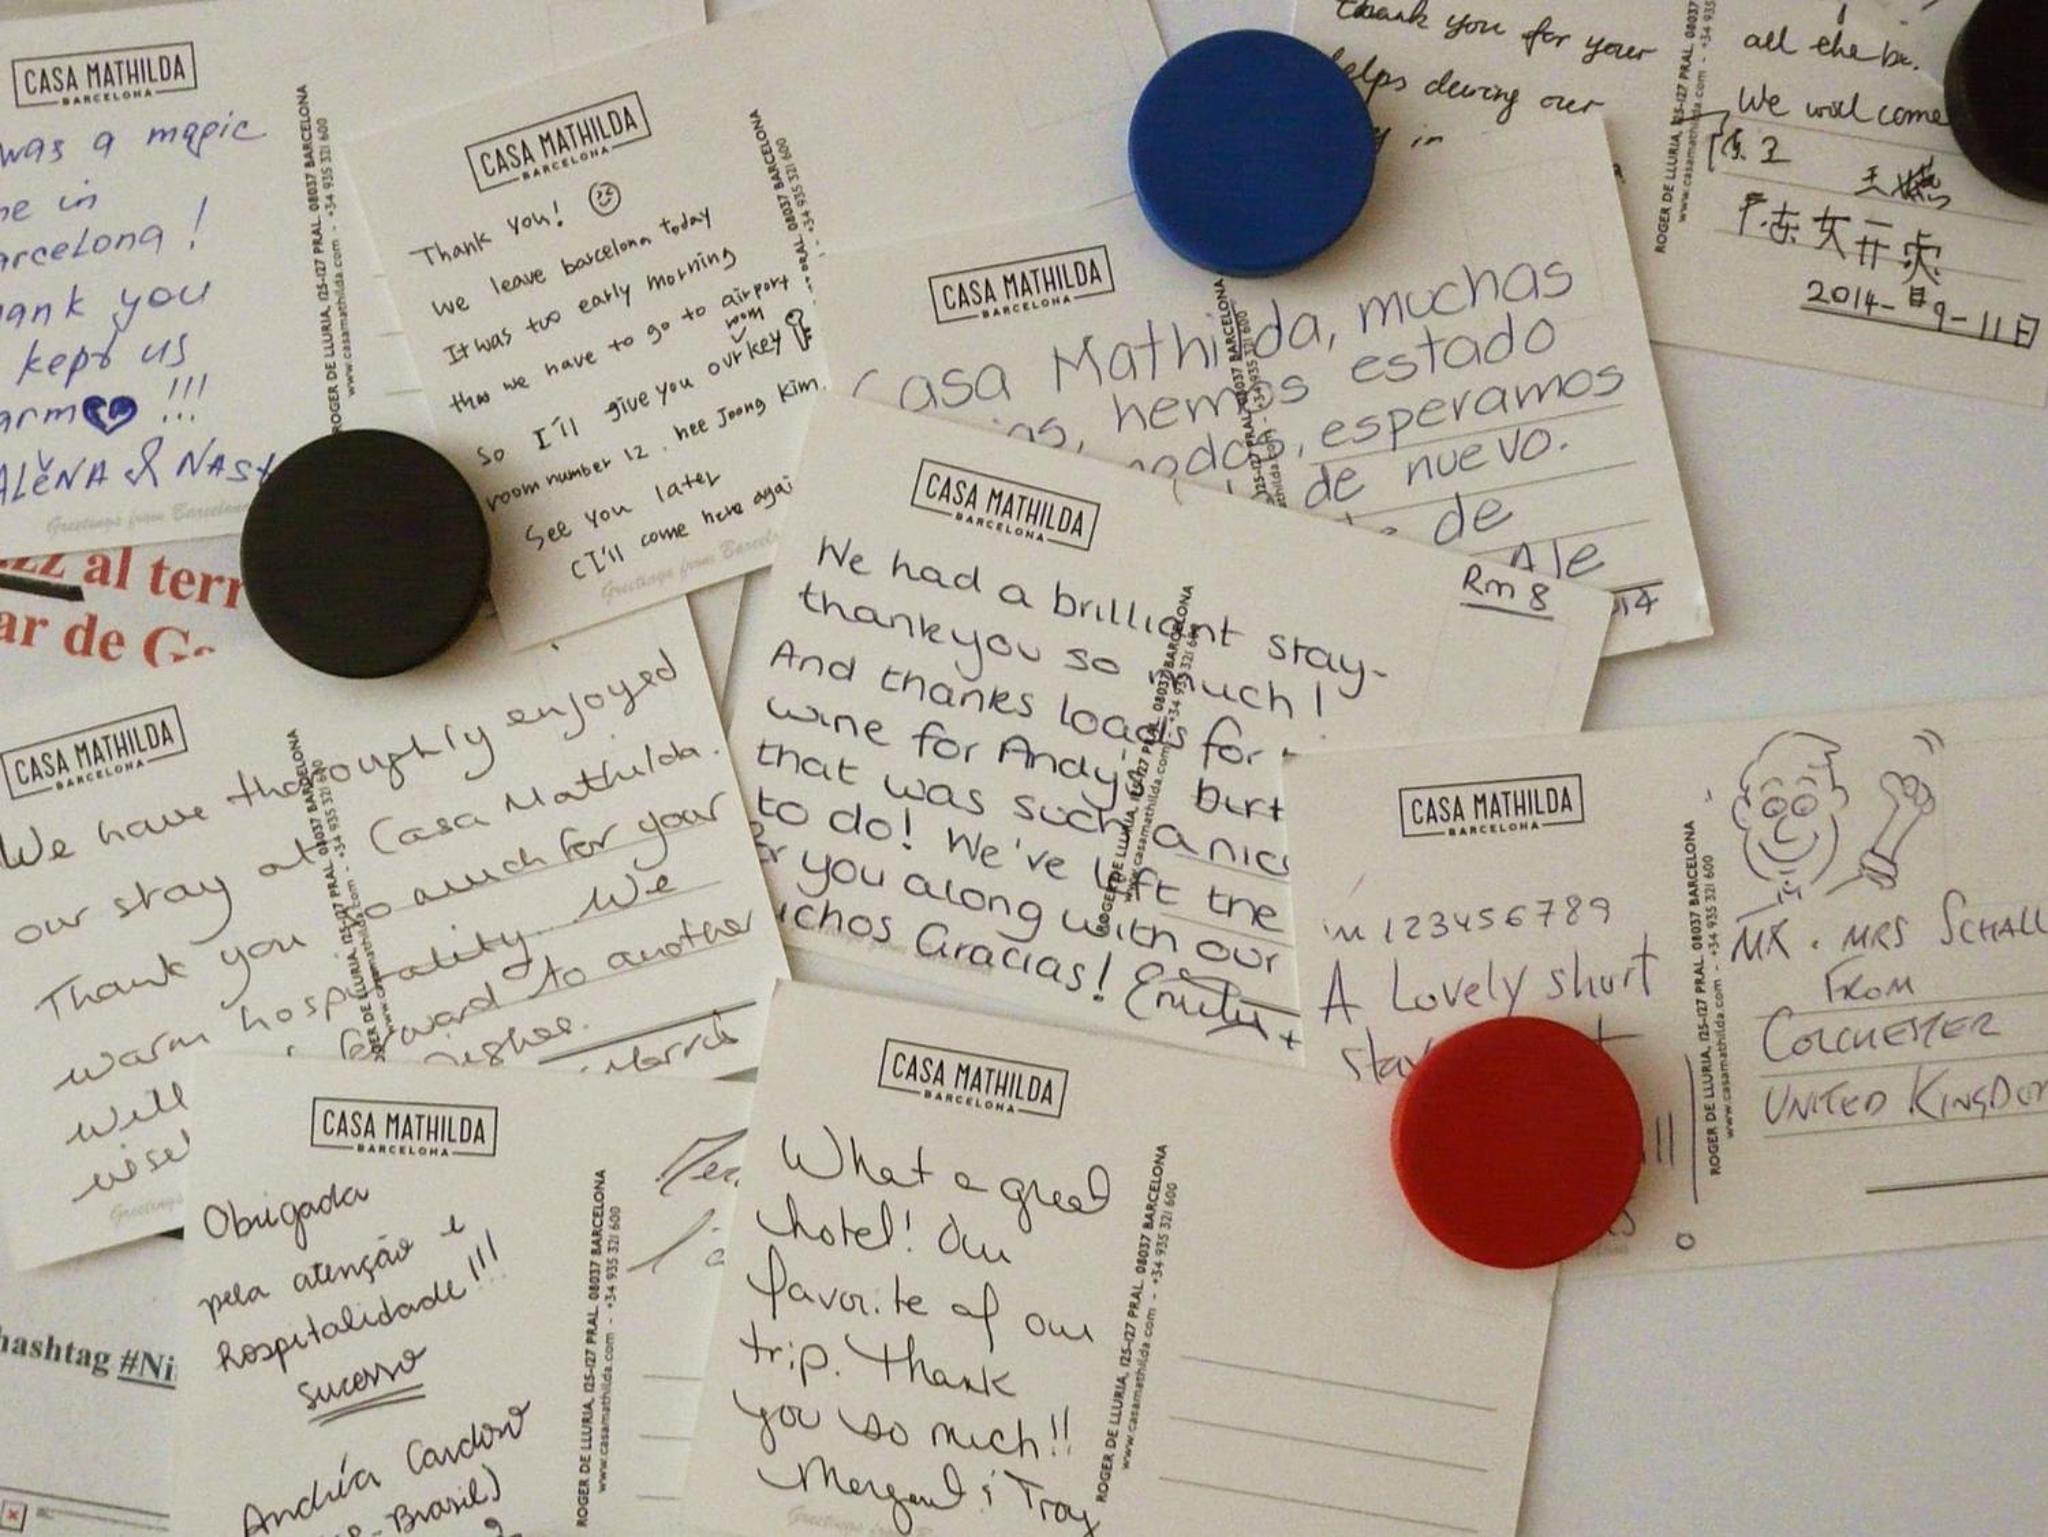 CASA MATHILDA
BARCELONA
was a magic
in
arcelona!
ank you
kept us
arm !!!
ALĕNA & NAST
Greetings from Barcelona
ROGER DE LLURIA, 125-127 PRAL. 08037 BARCELONA
www.casamathilda.com - +34 935 321 600
CASA MATHILDA
BARCELONA
Thank you!
we leave barcelona today
It was too early morning
we have to go to airport
room
So I'll give you our key
room number 12. hee Joong Kim.
See you later
(I'll come here agai
Greetings from Barcel
08037 BARCELONA
+34 935 321 600
thank you for your
helps during our
in
ROGER DE LLURIA, 125-127 PRAL. 08037
www.casamathilda.com - +34 935
all the
We will come
2014- 9-11日
CASA MATHILDA
BARCELONA
Casa Mathilda, muchas
hemos estado
esperamos
de nuevo.
de
Ale
08037 BARCELONA
al terr
ar de
CASA MATHILDA
BARCELONA
Rm 8
We had a brilliant stay-
thankyou so much!
And thanks loads for
wine for Andy's birt
that was such a nic
to do! We've left the
you along with our
chos Gracias! Emily +
ROGER DE LLURIA, 125-127 PRAL. 08037 BARCELONA
www.casamathilda.com - +34 935 321 600
CASA MATHILDA
BARCELONA
We have thoroughly enjoyed
our stay at Casa Mathilda.
Thank you so much for your
warm hospitality We
will forward to another
wishes.
Morris
Greetings
ROGER DE LLURIA, 125-127 PRAL. 08037 BARCELONA
www.casamathilda.com - +34 935 321 600
CASA MATHILDA
BARCELONA
123456789
A Lovely short
stay
ROGER DE LLURIA, 125-127 PRAL. 08037 BARCELONA
www.casamathilda.com - +34 935 321 600
MR . MRS SCHALL
FROM
COLCHESTER
UNITED KINGDOM
CASA MATHILDA
BARCELONA
Obrigada
pela atenção e
hospitalidade!!!
Sucesso
Andréa Cardoso
Brasil)
ROGER DE LLURIA, 125-127 PRAL. 08037 BARCELONA
www.casamathilda.com - +34 935 321 600
hashtag #Ni
CASA MATHILDA
BARCELONA
What a great
hotel! Our
favorite of our
trip. Thank
you so much!!
Troy
ROGER DE LLURIA, 125-127 PRAL. 08037 BARCELONA
www.casamathilda.com - +34 935 321 600